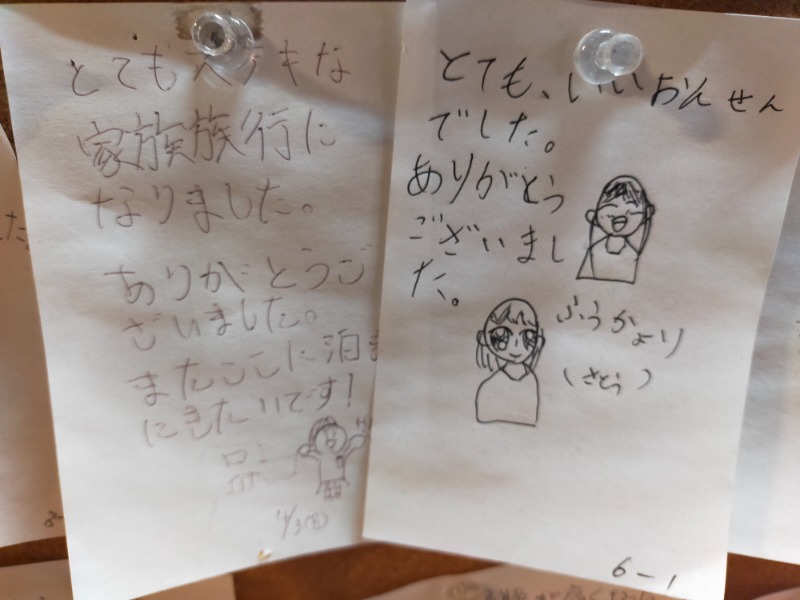 とてもステキな
家族族行に
なりました。
ありがとうご
ざいました。
またここに泊ま
にきたいです!
4/3(日)
とても、いいおんせん
でした。
ありがとう
ございまし
た。
ふうかより
(さとう)
6-1